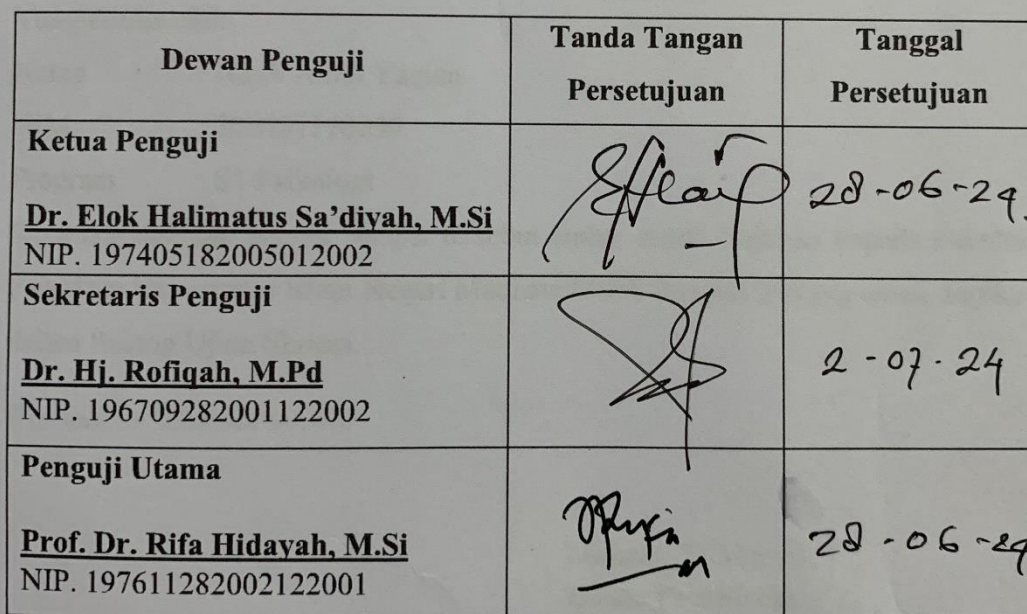 Dewan Penguji
Tanda Tangan
Persetujuan
Tanggal
Persetujuan
Ketua Penguji
Dr. Elok Halimatus Sa'diyah, M.Si
NIP. 197405182005012002
28-06-24.
Sekretaris Penguji
Dr. Hj. Rofiqah, M.Pd
NIP. 196709282001122002
2-07-24
Penguji Utama
Prof. Dr. Rifa Hidayah, M.Si
NIP. 197611282002122001
28-06-24